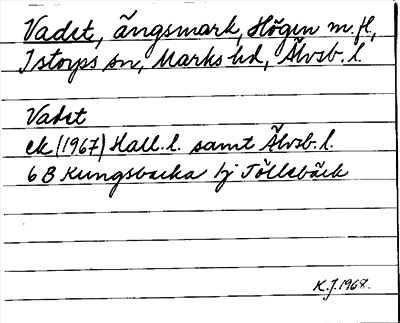 Vadet, ängsmark, Högen m. fl,
Istorps sn, Marks hd, Älvsb. l.
Vadet
ek (1967) Hall. l. samt Älvsb. l.
6 B Kungsbacka hj Töllsbäck
K.J. 1968.